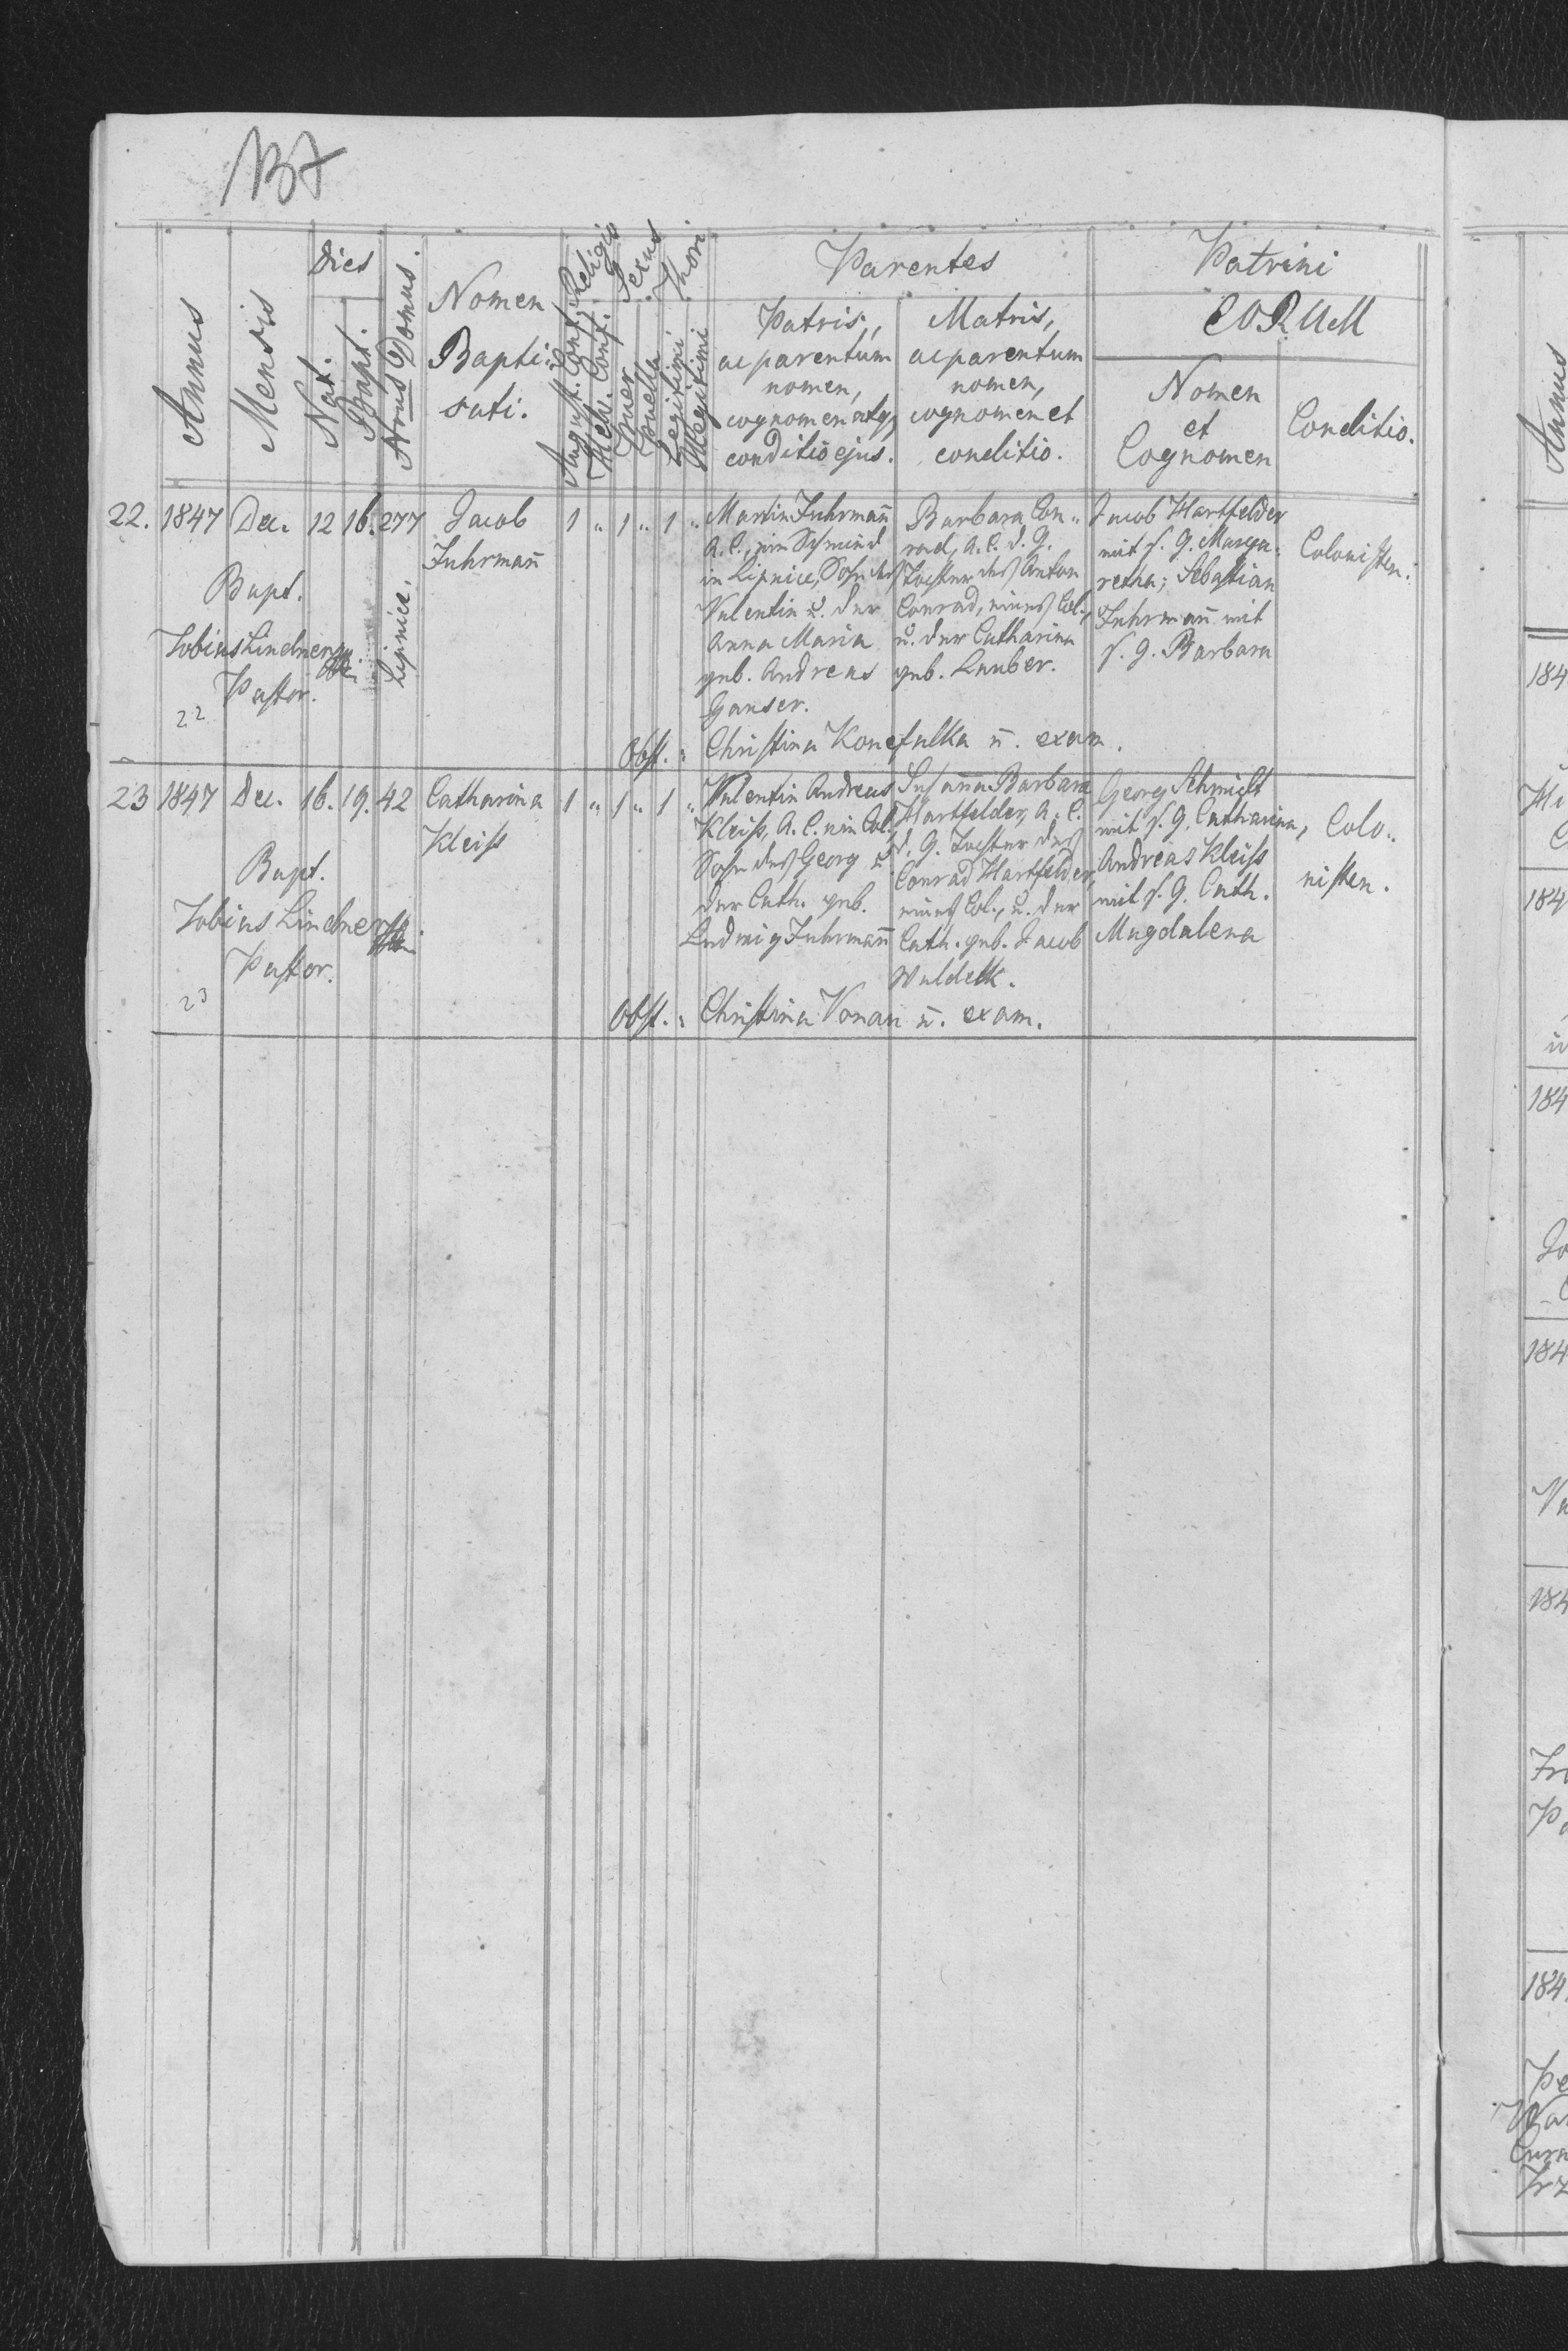 137
Annus
Mensis
Dies
Nat.
Bapt.
Nrus Domus.
Nomen
Bapti=
sati.
Religio
August. Conf.
Helv. Conf.
Sexus
Puer
Puella
Thori
Legitimi
Illegitimi
Parentes
Patris,
ac parentum
nomen,
cognomen atq,
conditio ejus.
Matris,
ac parentum
nomen,
cognomen et
conditio.
Patrini
EORUM
Nomen
et
Cognomen
Conditio.
22. 1847 Dec. 12 16. 277
Lipnice.
Bapt.
Tobias Lindner
Pastor.
22
Jacob
Fuhrmañ
1 " 1 " 1 "
Martin Fuhrmañ
A. C., ein Schmied
in Lipnice, Sohn des
Valentin u. der
Anna Maria
geb. Andreas
Ganser.
Barbara Con=
rad, A. C. d. G.
Tochter des Anton
Conrad, eines Col.,
u. der Catharina
geb. Lauber.
Jacob Hartfelder
mit s. G. Marga=
retha; Sebastian
Fuhrmañ mit
s. G. Barbara
Colonisten.
Obst. : Christina Konefalka ñ. exam.
23 1847 Dec. 16. 19. 42
Bapt.
Tobias Lindner
Pastor.
23
Catharina
Kleiss
1 " 1 " 1 "
Valentin Andreas
Kleiss, A. C. ein Col.,
Sohn des Georg u.
der Cath. geb.
Ludwig Fuhrmañ
Susaña Barbara
Hartfelder, A. C.
d. G. Tochter des
Conrad Hartfelder,
eines Col., u. der
Cath. geb. Jacob
Waldeck.
Georg Schmidt
mit s. G. Catharina,
Andreas Kleiss
mit s. G. Cath.
Magdalena
Colo=
nisten.
Obst. : Christina Vonau ñ. exam.
Annus
184
184
184
184
184
184